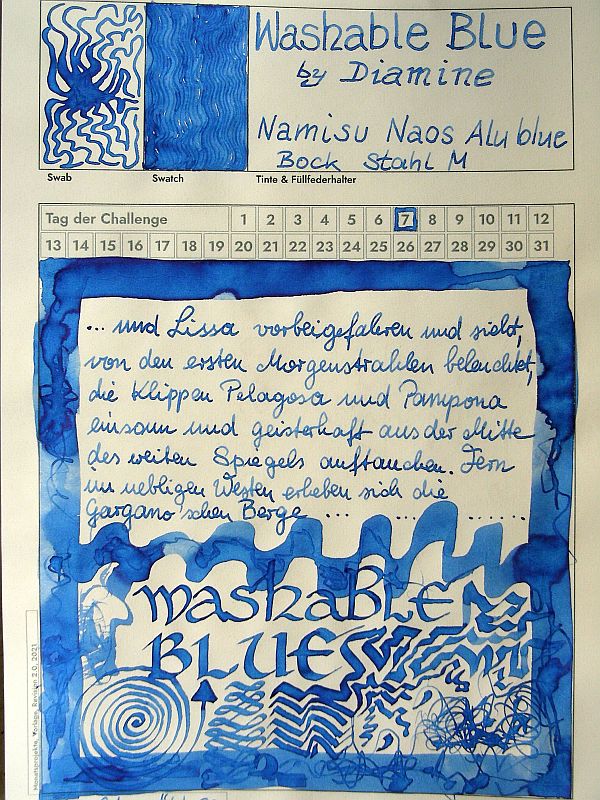 Washable Blue
by Diamine
Namisu Naos Alu blue
Bock Stahl M
Swab Swatch Tinte & Füllfederhalter
Tag der Challenge 1 2 3 4 5 6 7 8 9 10 11 12
13 14 15 16 17 18 19 20 21 22 23 24 25 26 27 28 29 30 31
... und Lissa vorbeigefahren und sieht,
von den ersten Morgenstrahlen beleuchtet,
die Klippen Pelagosa und Pampona
einsam und geisterhaft aus der Mitte
des weiten Spiegels auftauchen. Fern
im nebligen Westen erheben sich die
Gargano'schen Berge ... ... ......
WASHABLE
BLUE
Monatsprojekte, Vorlage, Revision 2.0, 2021